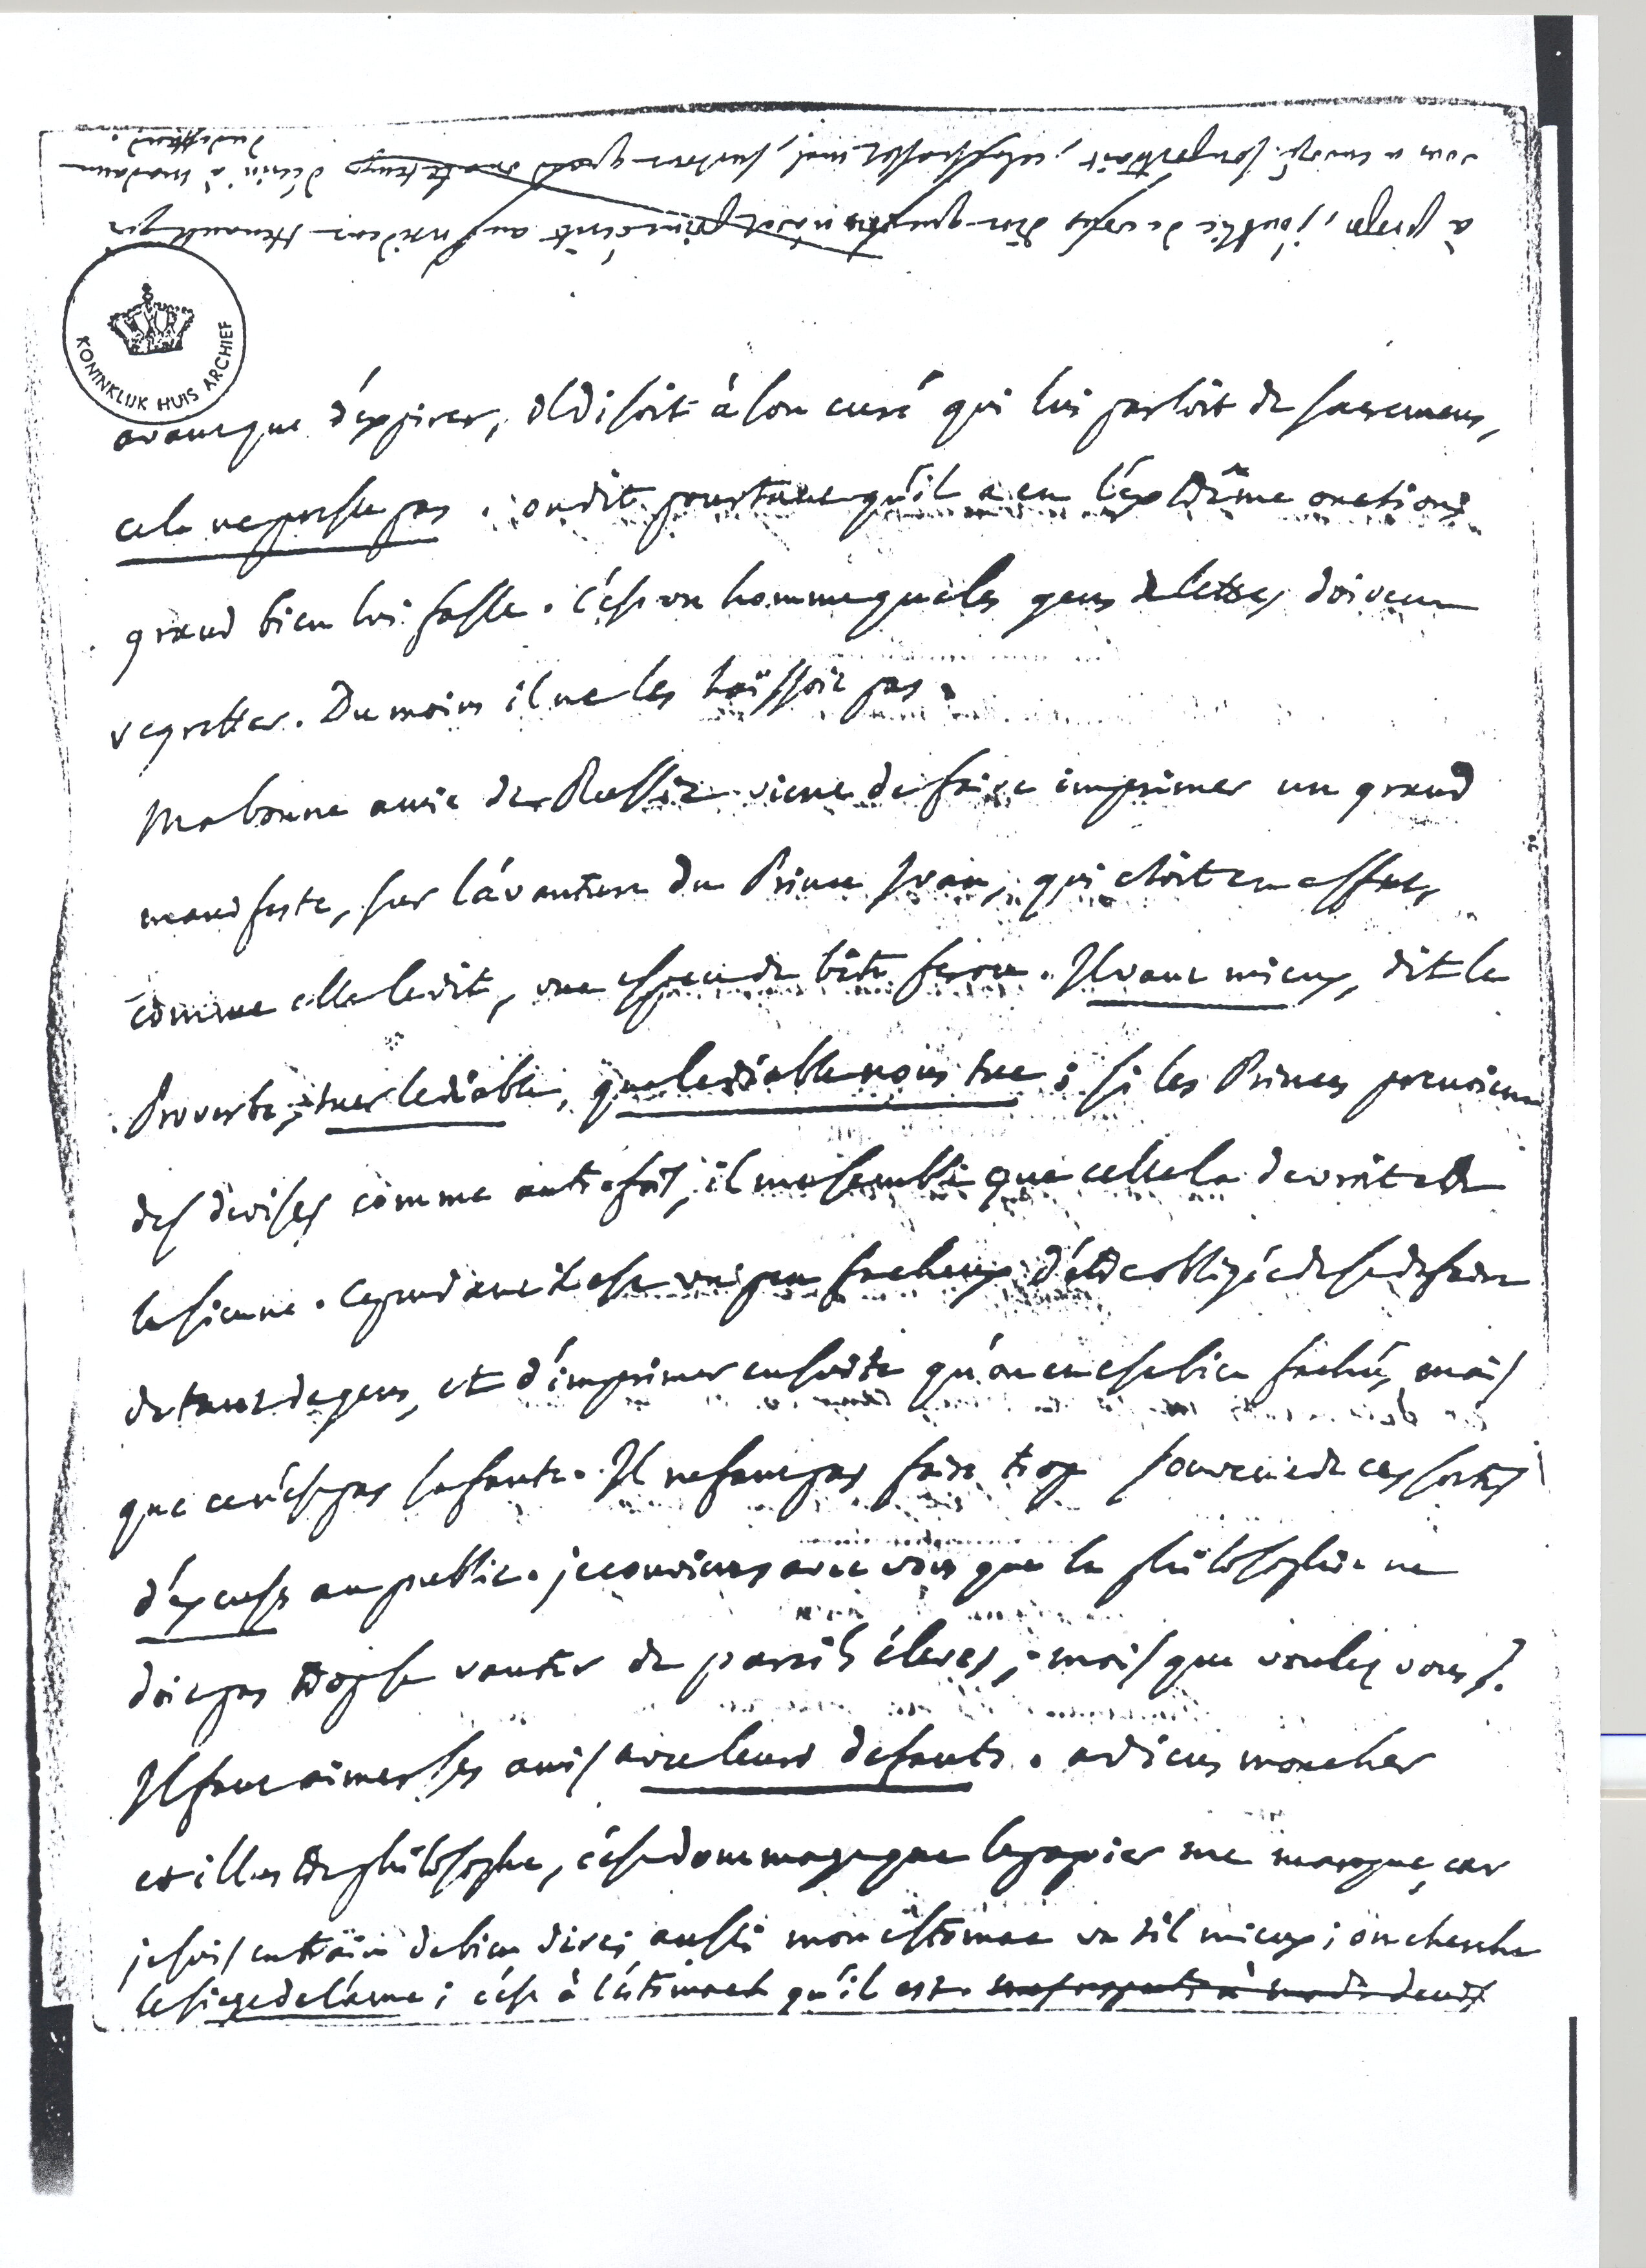 à propos, j'oublie de vous dire que
au president Henault qui
vous a envoyé son portrait,
d'écrit à madame
Dudeffand.
KONINKLIJK HUIS ARCHIEF
avant que d'expirer, il disoit à son curé qui lui parloit de sacremens,
cela ne presse pas. on dit pourtant qu'il a eu l'extrême onction;
grand bien lui fasse. c'est un homme que les gens de lettres doivent
regretter. Du moins il ne les haïssoit pas.
Ma bonne amie de Russie vient de faire imprimer un grand
manifeste, sur l'avanture du Prince Ivan, qui etoit en effet,
comme elle le dit, une espece de bête feroce. Il vaut mieux, dit le
Proverbe, tuer le diable, que le diable nous tue; si les Princes prenoient
des devises comme autrefois, il me semble que celle la devroit etre
la sienne. Cependant il est un peu facheux d'être obligé de se defaire
de tant de gens, et d'imprimer ensuite qu'on en est bien faché, mais
que ce n'est pas sa faute. Il ne faut pas faire trop souvent de ces sortes
d'excuses au public. je conviens avec vous que la philosophie ne
doit pas trop se vanter de pareils éleves; mais que voulez vous?
Il faut aimer ses amis avec leurs defauts. adieu mon cher
et illustre philosophe, c'est dommage que le papier me manque, car
je suis en train de bien dire; aussi mon estomac va t'il mieux; on cherche
le siege de l'ame; c'est à l'estomach qu'il est.